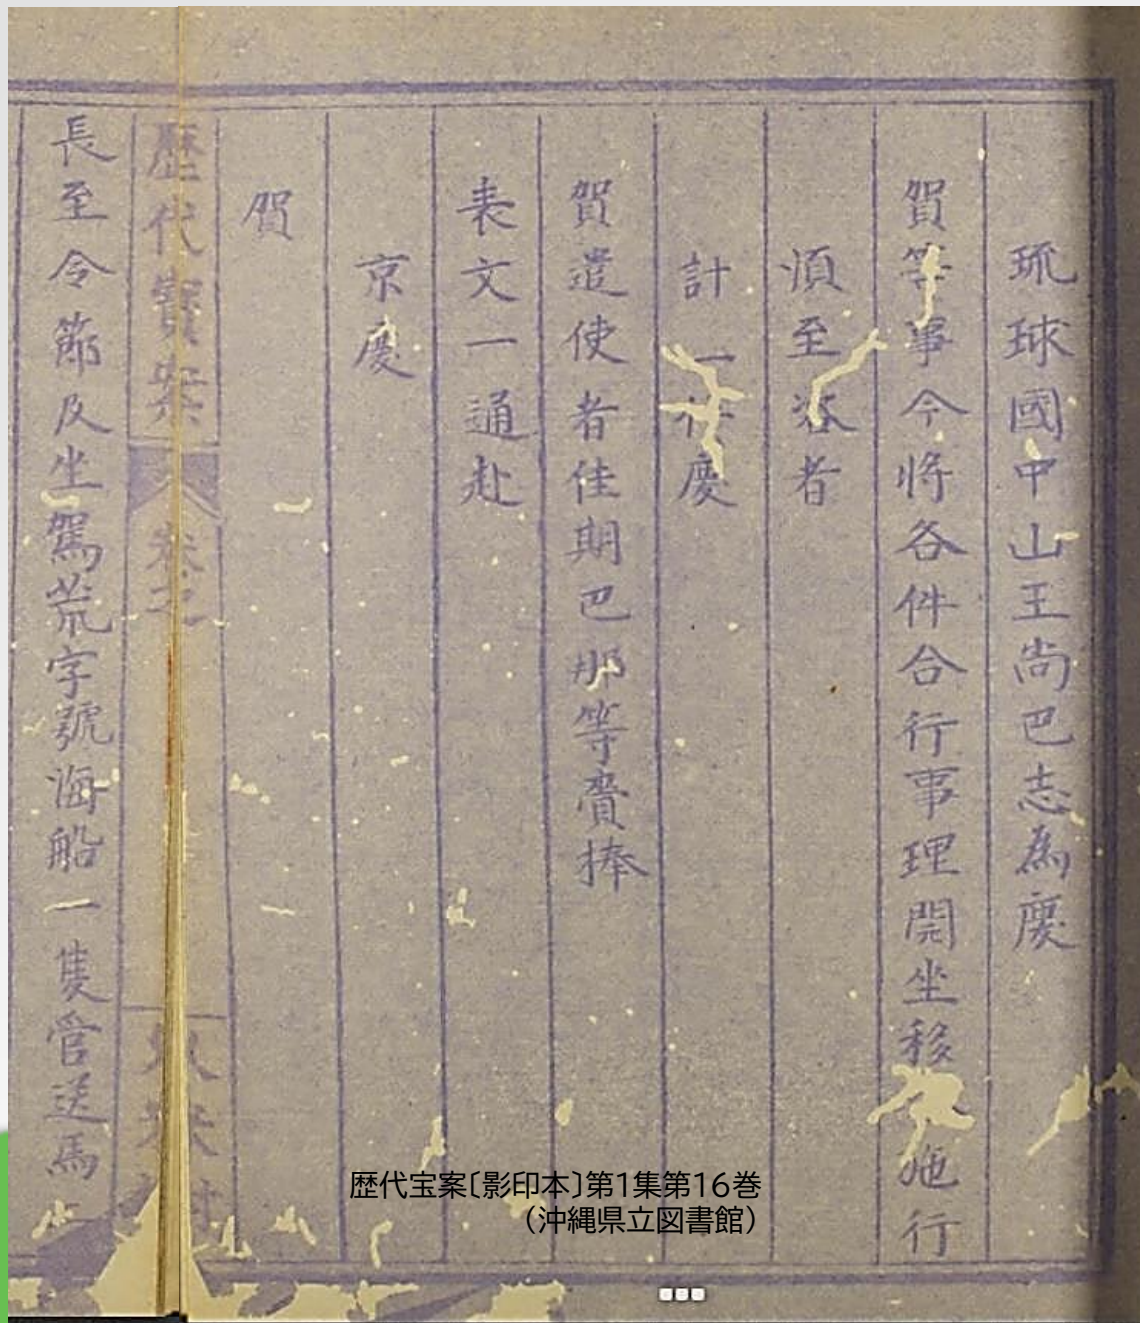 琉球國中山王尚巴志為慶
賀等事今将各件合行事理開坐移施行
湏至咨者
計一件慶
賀遣使者佳期巴那等賫捧
表文一通赴
京慶
賀
歷代寳案
卷之
長至令節及坐駕荒字號海船一隻管送馬
歴代宝案〔影印本〕第1集第16巻
（沖縄県立図書館）